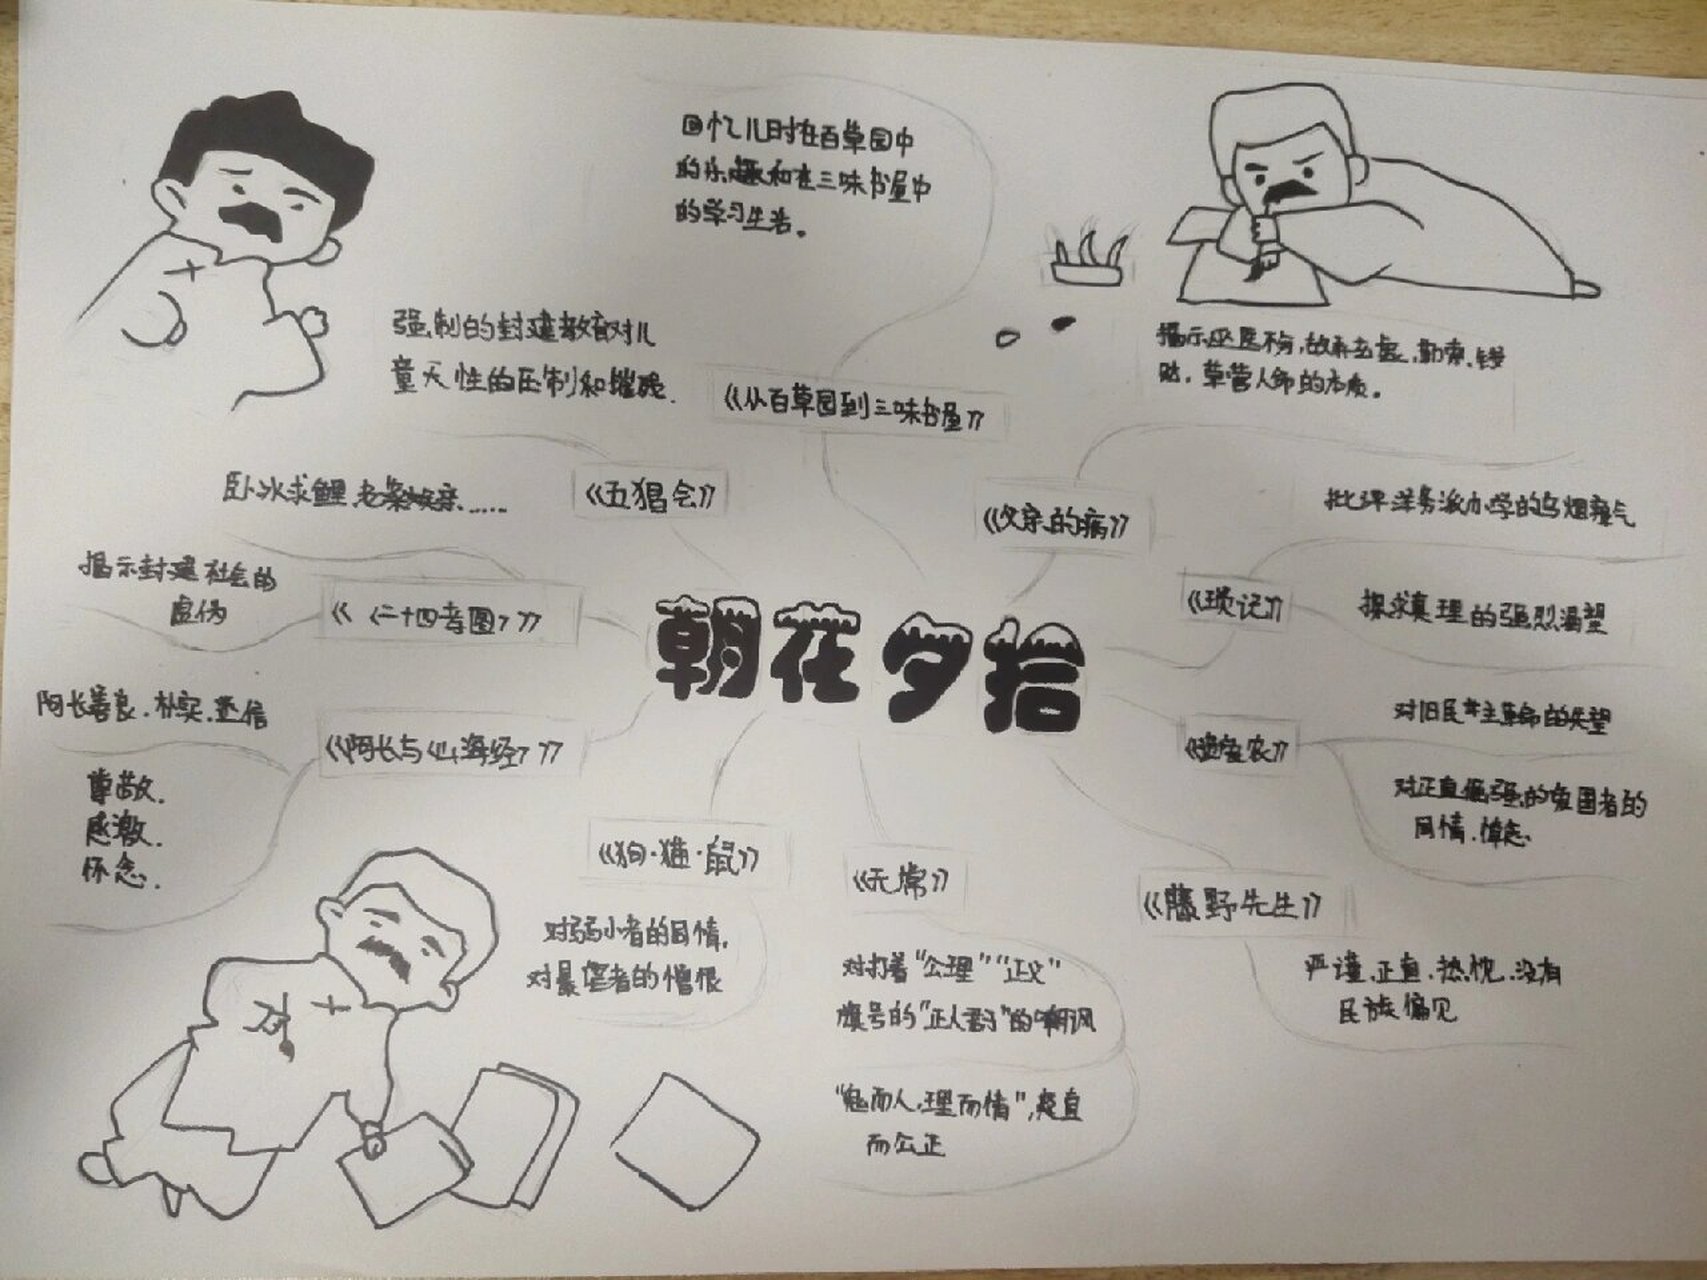 回忆儿时在百草园中
的乐趣和在三味书屋中
的学习生活。
《从百草园到三味书屋》
强制的封建教育对儿
童天性的压制和摧残.
《五猖会》
卧冰求鲤.老莱娱亲……
揭示封建社会的
虚伪
《《二十四孝图》》
阿长善良.朴实.迷信
《阿长与《山海经》》
尊敬.
感激.
怀念.
朝花夕拾
揭示巫医不分,故弄玄虚,勒索钱
财,草菅人命的本质。
《父亲的病》
批评洋务派办学的乌烟瘴气
《琐记》
探求真理的强烈渴望
对旧民主主革命的失望
《范爱农》
对正直倔强的爱国者的
同情.悼念
《狗·猫·鼠》
对弱小者的同情,
对暴虐者的憎恨
《无常》
对打着“公理”“正义”
旗号的“正人君子”的嘲讽
“鬼而人,理而情”,爽直
而公正
《藤野先生》
严谨.正直.热忱.没有
民族偏见